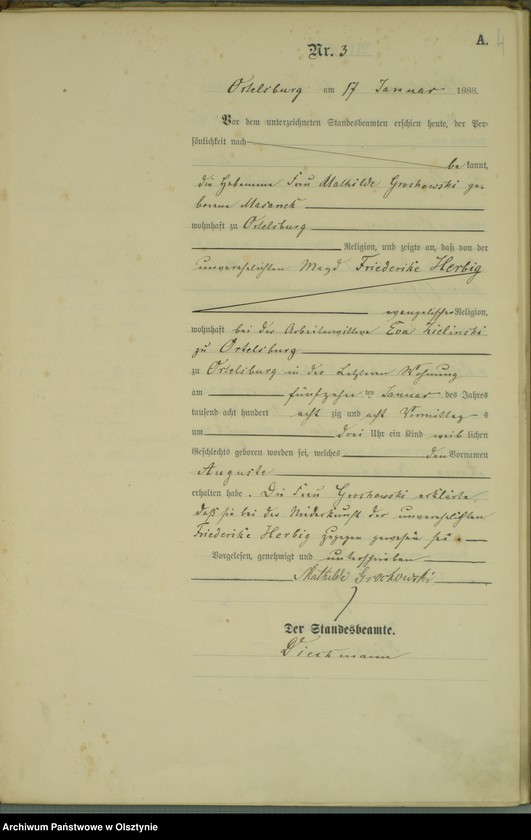 A. 4
Nr. 3
Ortelsburg am 17 Januar 1888.
Vor dem unterzeichneten Standesbeamten erschien heute, der Per-
sönlichkeit nach
bekannt,
die Hebamme Frau Mathilde Grochowski ge-
borene Masanek
wohnhaft zu Ortelsburg
Religion, und zeigte an, daß von der
unverehelichten Magd Friederike Herbig
evangelischer Religion,
wohnhaft bei der Arbeiterwittwe Eva Zielinski
zu Ortelsburg
zu Ortelsburg in der Letzteren Wohnung
am fünfzehn ten Januar des Jahres
tausend acht hundert achtzig und acht Vormittags
um drei Uhr ein Kind weiblichen
Geschlechts geboren worden sei, welches den Vornamen
Auguste
erhalten habe. Die Frau Grochowski erklärte,
daß sie bei der Niederkunft der unverehelichten
Friederike Herbig zugegen gewesen sei.
Vorgelesen, genehmigt und unterschrieben
Mathilde Grochowski
Der Standesbeamte.
Archiwum Państwowe w Olsztynie